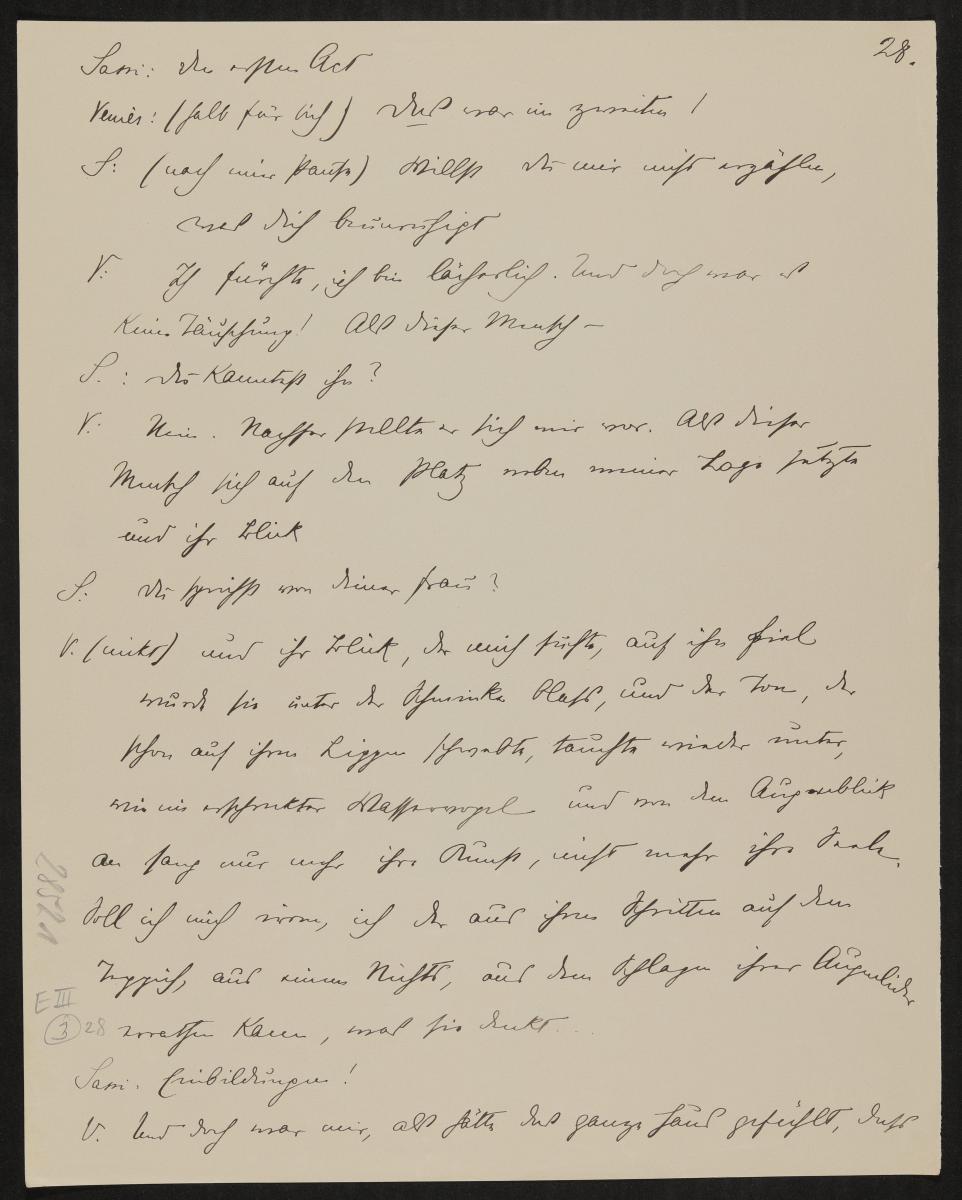 28.
Sassi: den ersten Act
Venier: (halb für sich) Das war im zweiten!
S: (nach einer Pause) Willst du mir nicht erzählen,
was dich beunruhigt
V: Ich fürchte, ich bin lächerlich. Und doch war es
keine Täuschung! Als dieser Mensch –
S.: Du kanntest ihn?
V: Nein. Nachher stellte er sich mir vor. Als dieser
Mensch sich auf den Platz neben meiner Loge setzte
und ihr Blick
S: Du sprichst von deiner Frau?
V. (nickt) und ihr Blick, der mich suchte, auf ihn fiel
wurde sie unter der Schminke blass, und der Ton, der
schon auf ihren Lippen schwebte, tauchte wieder unter,
wie ein erschreckter Wasservogel und von dem Augenblick
an sang nur mehr ihre Kunst, nicht mehr ihre Seele.
Soll ich mich irren, ich der aus ihren Schritten auf dem
Teppich, aus einem Nichts, aus dem Schlagen ihrer Augenlider
errathen kann, was sie denkt...
Sassi. Einbildungen!
V. Und doch war mir, als hätte das ganze Haus gefühlt, dass
E III
3 28